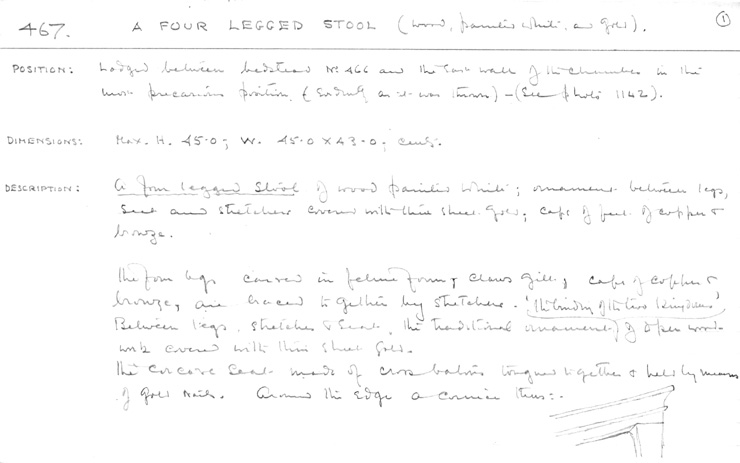 467. A FOUR LEGGED STOOL (wood, painted white, and gold). 1
POSITION: Lodged between bedstead No 466 and the East wall of the Chamber in the
most precarious position, (evidently as it was thrown) – (See photo 1142).
DIMENSIONS: Max. H. 45.0; W. 45.0 X 43.0; cents.
DESCRIPTION: A four legged stool of wood painted white; ornament between legs,
seat and stretchers covered with thin sheet gold; caps of feet of copper or
bronze.
The four legs carved in feline form, claws gilt, caps of copper or
bronze, are braced together by stretchers. 'The binding of the two Kingdoms'
Between legs, stretcher & seat, the traditional ornament, of open wood-
work covered with thin sheet gold.
The concave seat made of cross battens tongued together & held by means
of gold nails. Around the edge a cornice thus:-